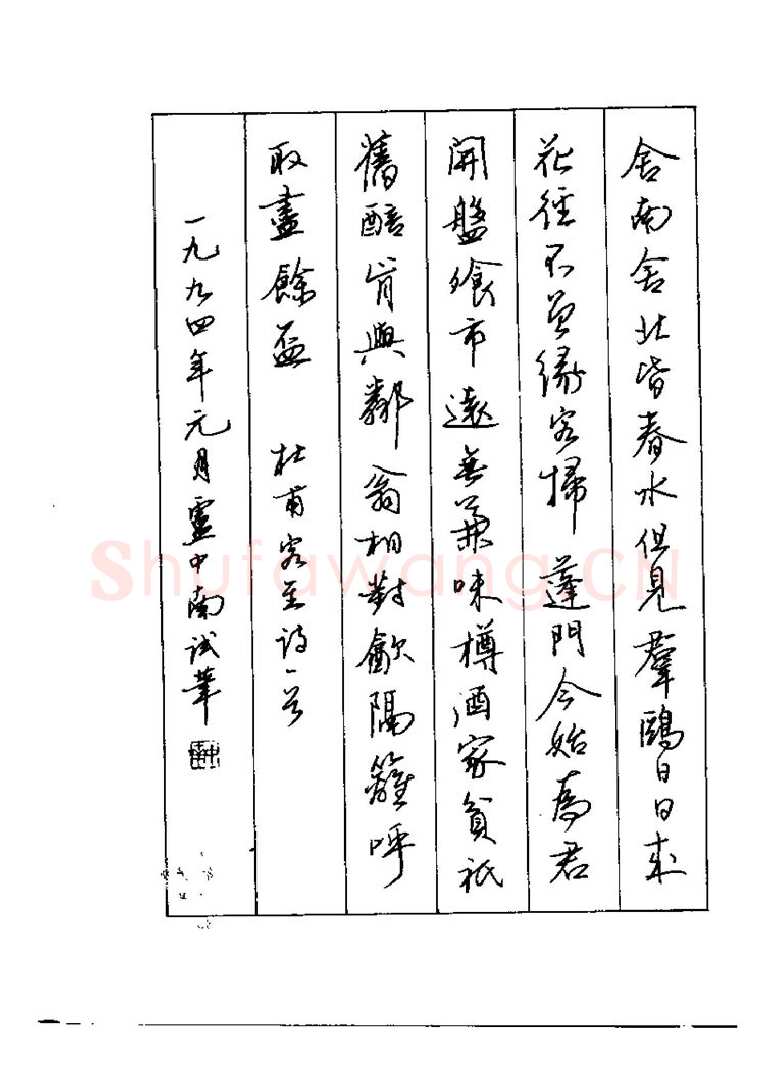 舍南舍北皆春水但見羣鷗日日來
花徑不曾緣客掃蓬門今始為君
開盤飧市遠無兼味樽酒家貧祇
舊醅肯與鄰翁相對飲隔籬呼
取盡餘盃 杜甫客至詩一首
一九九四年元月盧中南試筆
Shufawang.CN